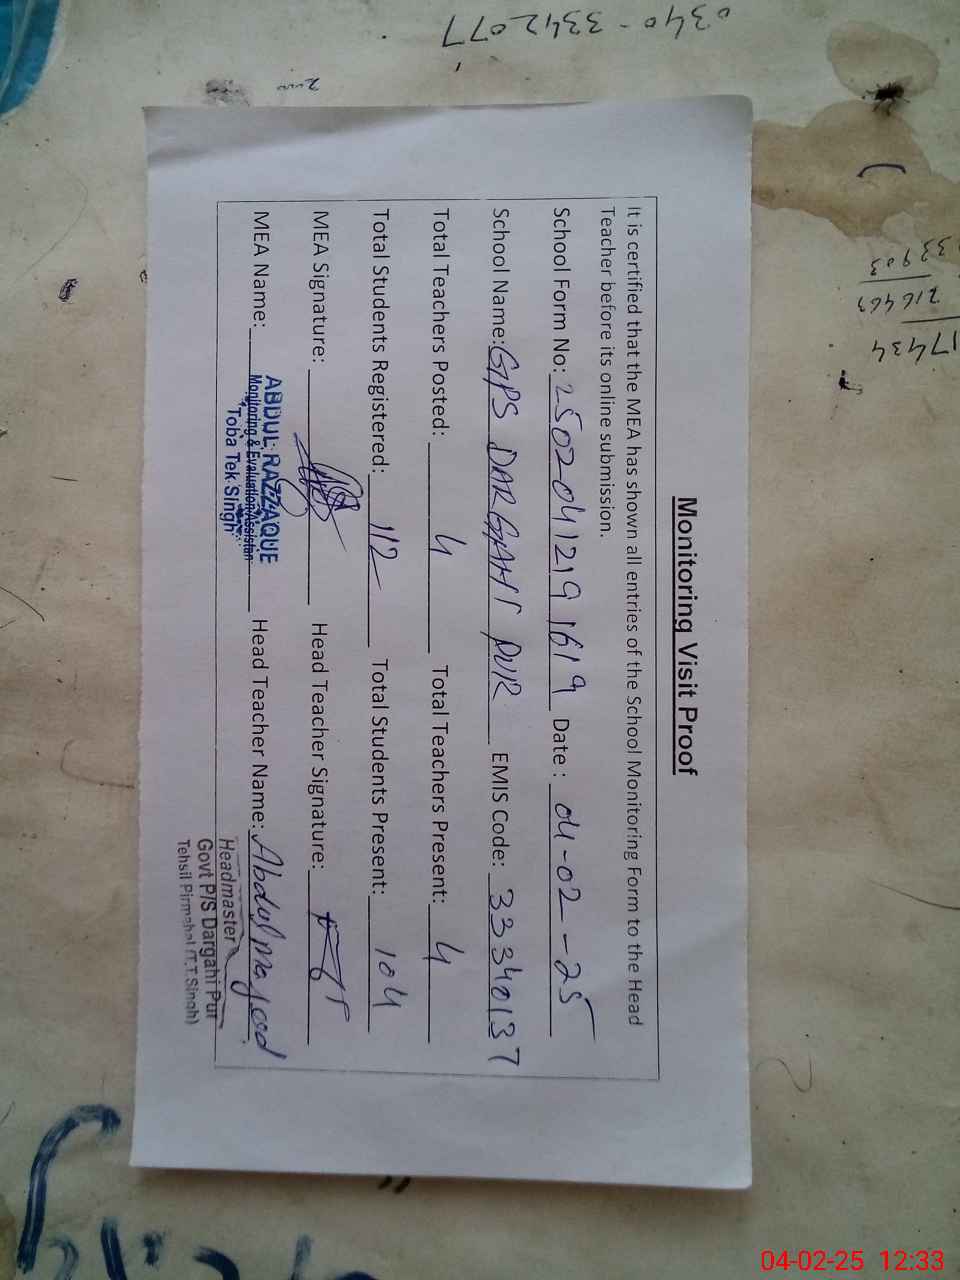 Monitoring Visit Proof
It is certified that the MEA has shown all entries of the School Monitoring Form to the Head
Teacher before its online submission.
School Form No: 25020412191619 Date : 04-02-25
School Name: GPS DARGAHI PUR EMIS Code: 33340137
Total Teachers Posted: 4 Total Teachers Present: 4
Total Students Registered: 112 Total Students Present: 104
MEA Signature: Head Teacher Signature:
MEA Name: ABDUL RAZZAQUE Head Teacher Name: Abdul Majeed
Monitoring & Evaluation Assistan
Toba Tek Singh
Headmaster
Govt P/S Dargahi Pur
Tehsil Pirmahal (T.T.Singh)
0340-3342077
33903
216469
17434
04-02-25 12:33